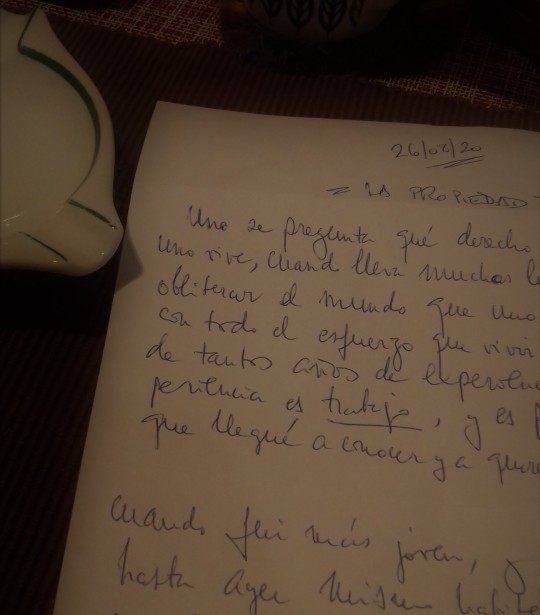 26/02/20
= LA PROPIEDAD
Uno se pregunta qué derecho
uno vive, cuand lleva muchos
obliterar el mundo que uno
con todo el esfuerzo que vivir
de tantos años de
periencia es trabajo, y es
que llegué a conocer y a
Cuando fui más joven,
hasta ayer mismo